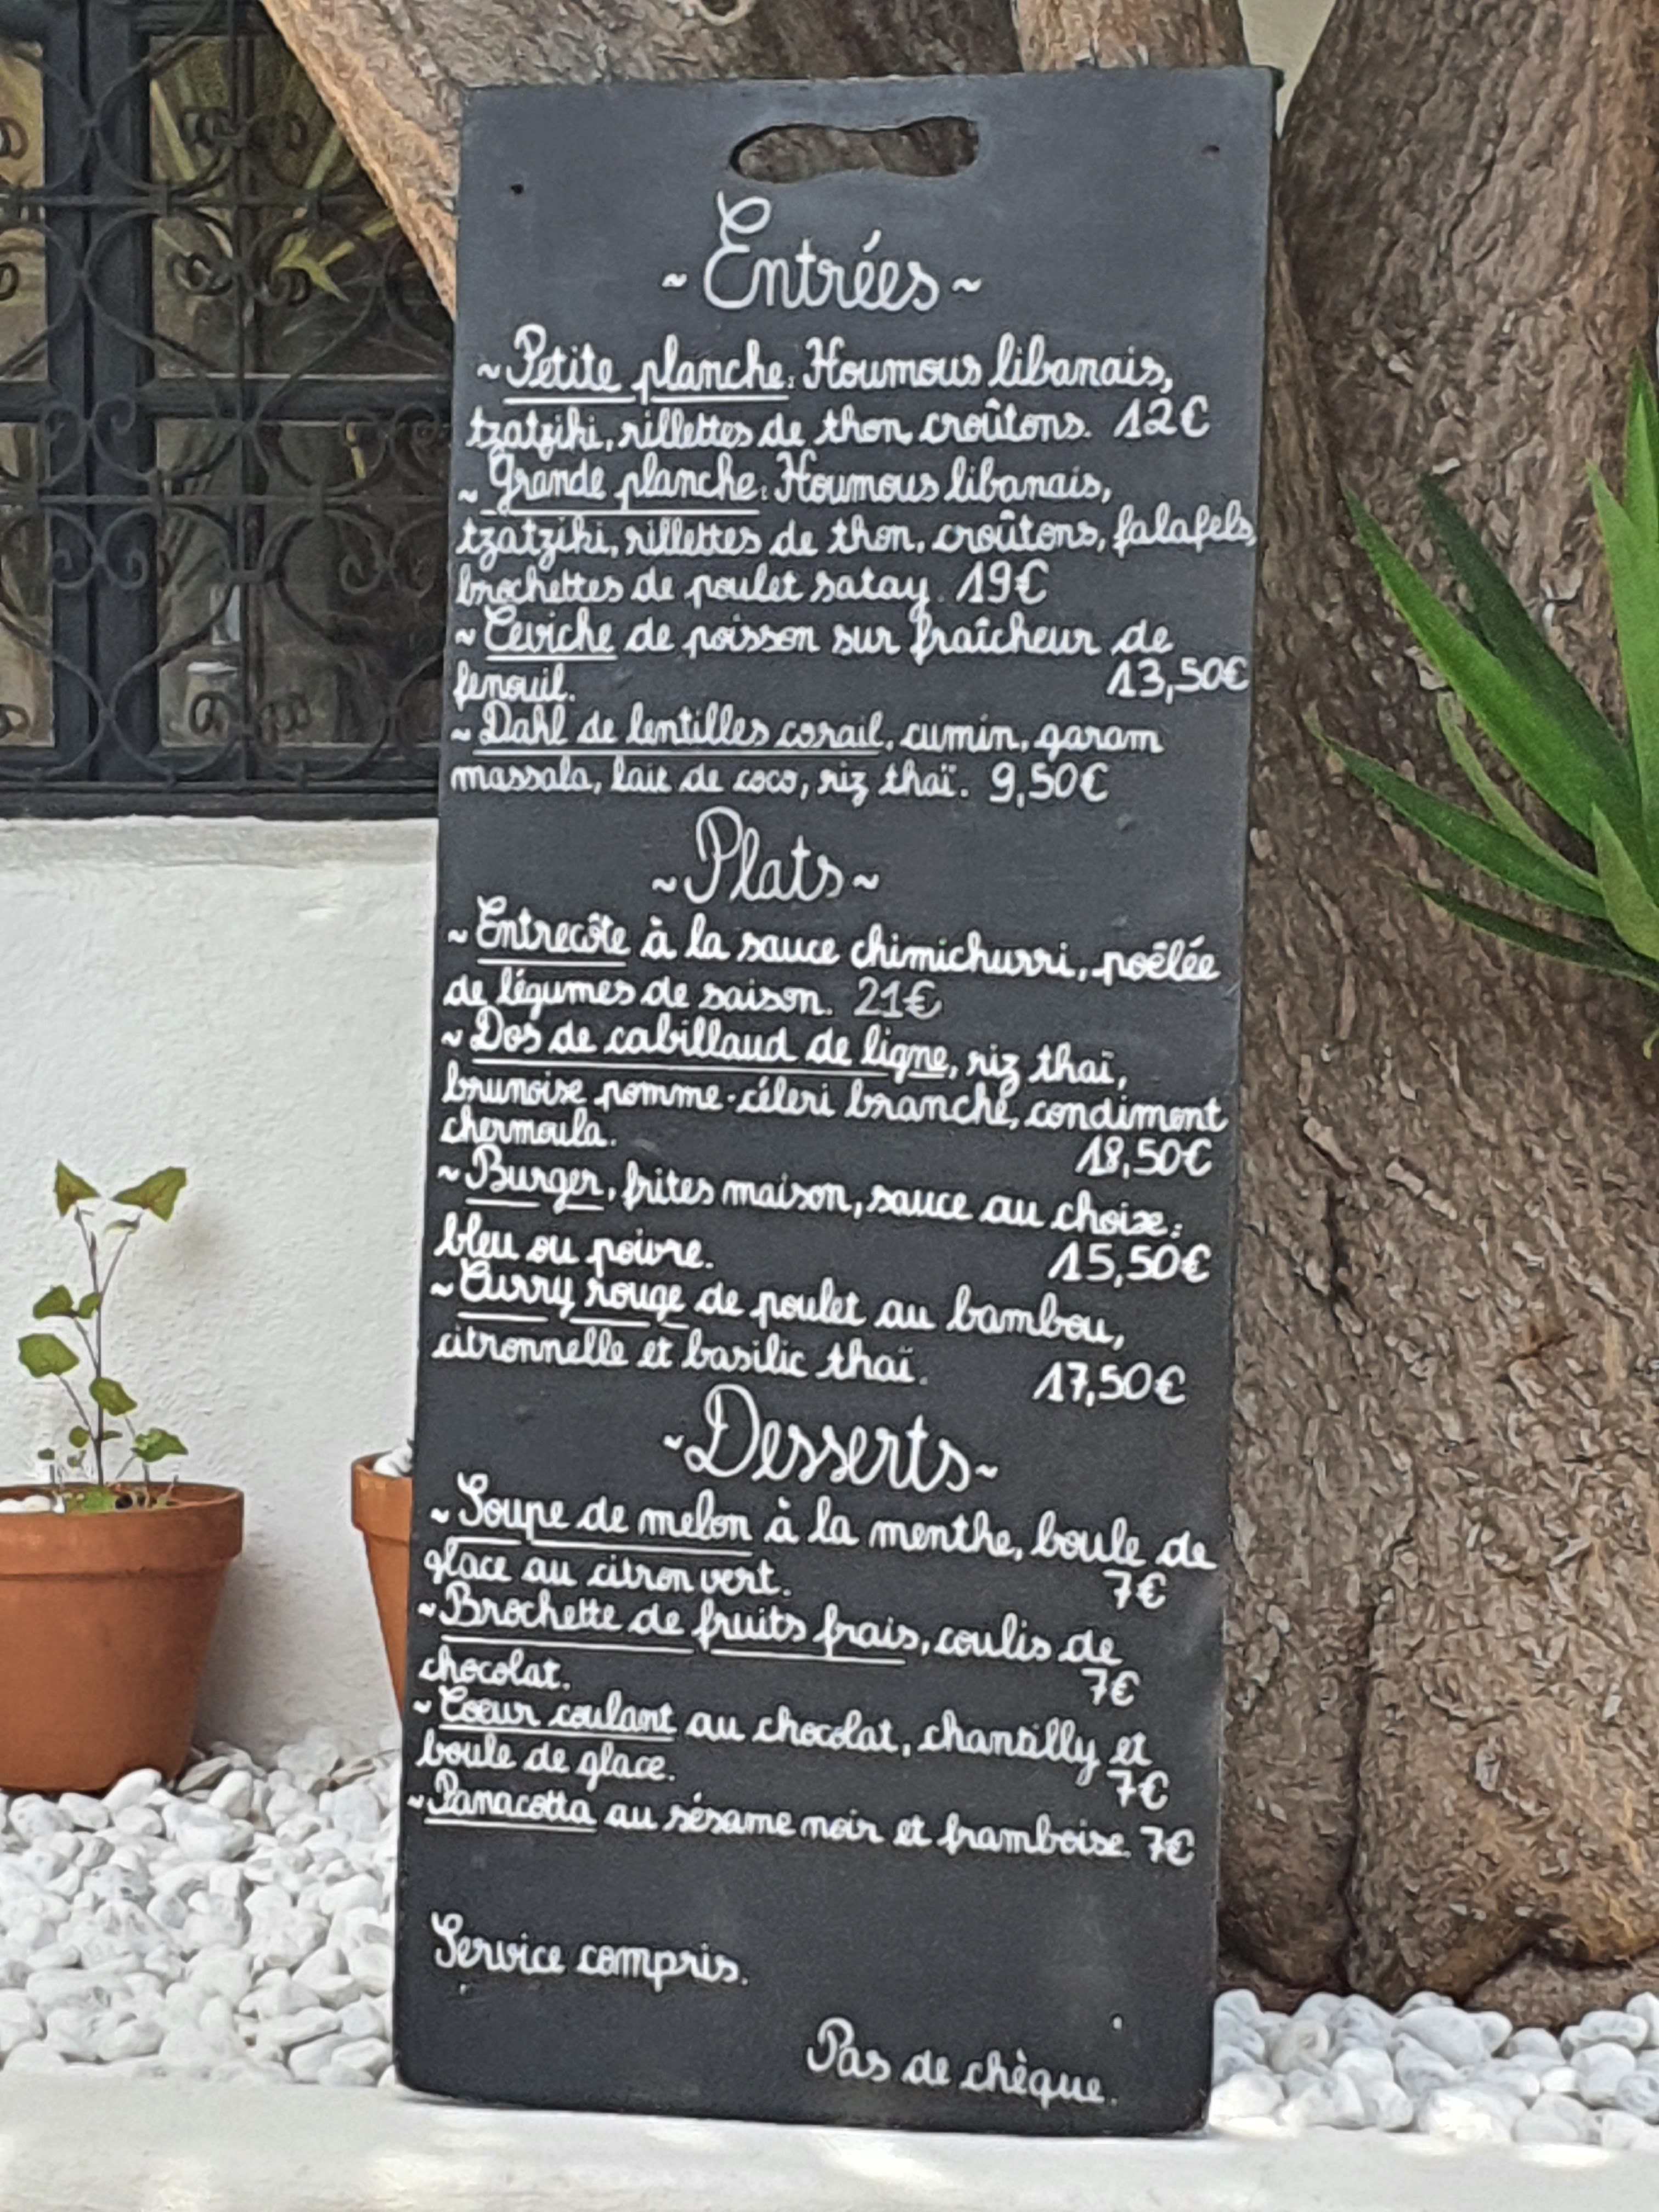 ~ Entrées ~
~ Petite planche: Houmous libanais,
tzatziki, rillettes de thon, croûtons. 12€
~ Grande planche: Houmous libanais,
tzatziki, rillettes de thon, croûtons, falafels,
brochettes de poulet satay. 19€
~ Ceviche de poisson sur fraîcheur de
fenouil. 13,50€
~ Dahl de lentilles corail, cumin, garam
massala, lait de coco, riz thaï. 9,50€
~ Plats ~
~ Entrecôte à la sauce chimichurri, poêlée
de légumes de saison. 21€
~ Dos de cabillaud de ligne, riz thaï,
brunoise pomme-céleri branche, condiment
chermoula. 18,50€
~ Burger, frites maison, sauce au choix:
bleu ou poivre. 15,50€
~ Curry rouge de poulet au bambou,
citronnelle et basilic thaï. 17,50€
~ Desserts ~
~ Soupe de melon à la menthe, boule de
glace au citron vert. 7€
~ Brochette de fruits frais, coulis de
chocolat. 7€
~ Coeur coulant au chocolat, chantilly et
boule de glace. 7€
~ Panacotta au sésame noir et framboise. 7€
Service compris.
Pas de chèque.